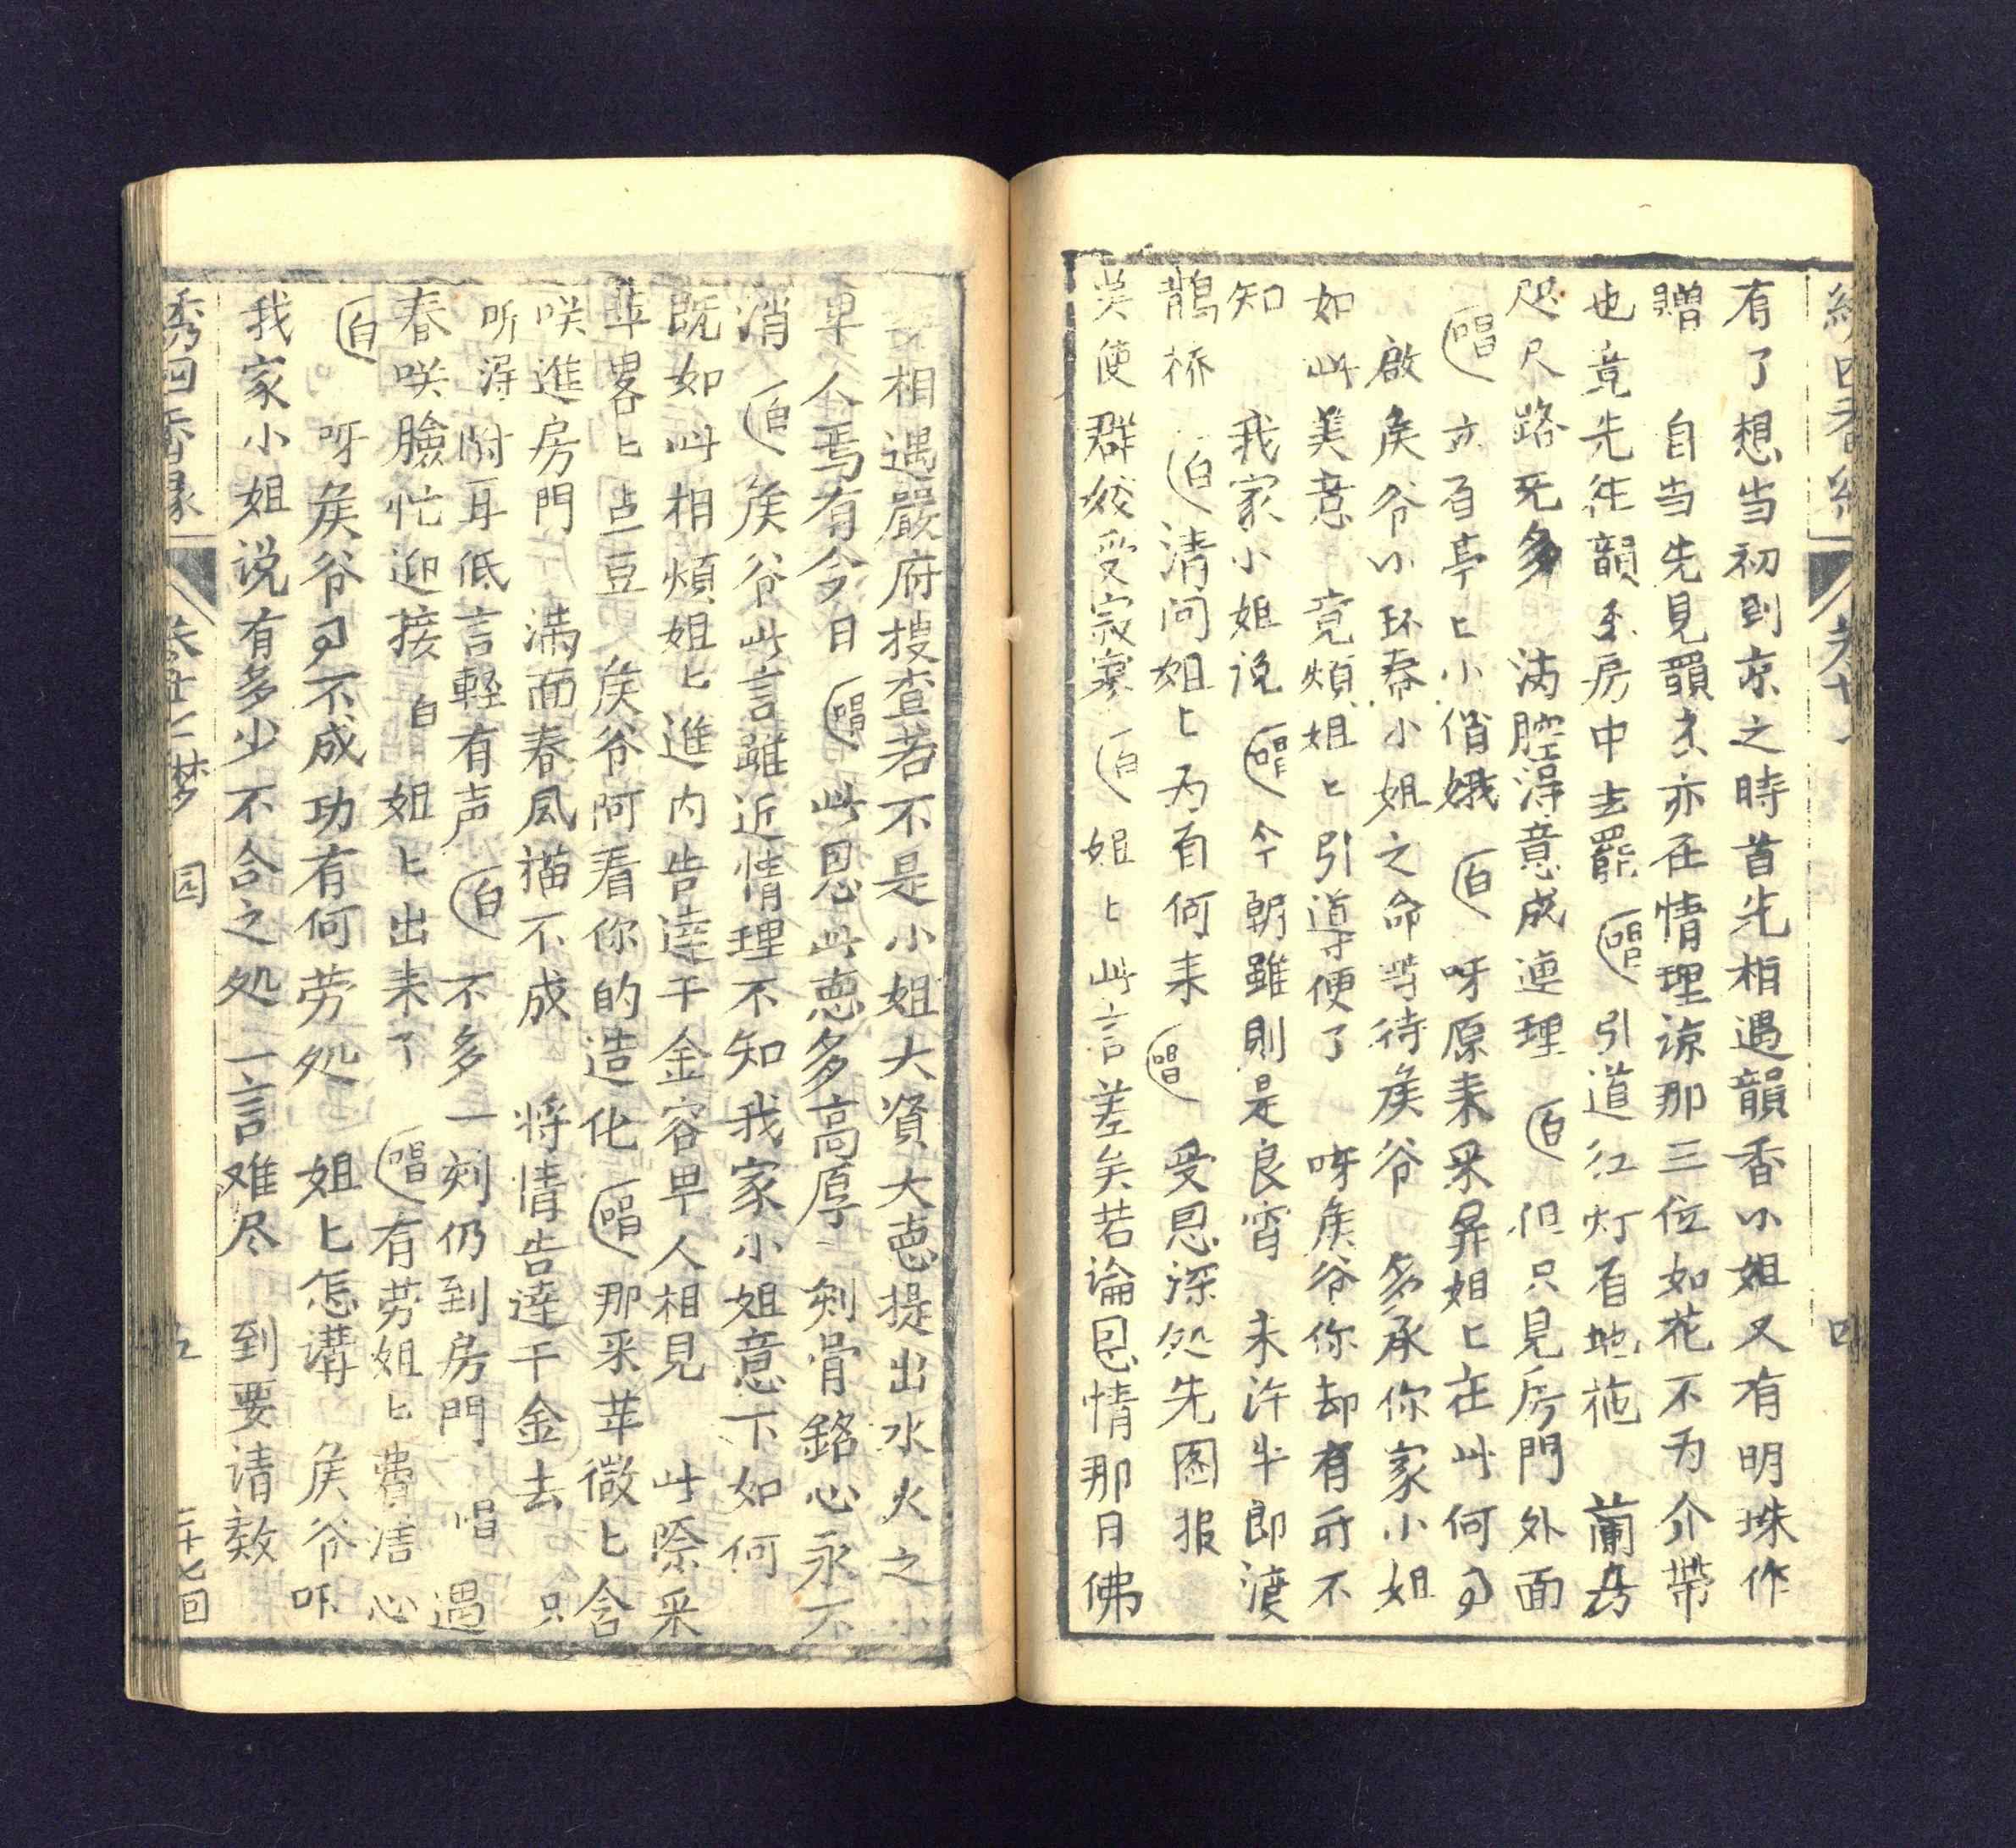 有了想当初到京之時首先相遇韻香小姐又有明珠作
贈　自当先見韻香亦在情理諒那三位如花不为介带
也竟先往韻香房中去罷（唱）引道红灯有地拖　蘭房
咫尺路无多　满腔淂意成連理（白）但只見房門外面
（唱）立有亭匕小俏娥（白）呀原来采屏姐匕在此何
啟矦爷小环奉小姐之命等待矦爷　多承你家小姐
如此美意　竟煩姐匕引導便了　呀矦爷你却有所不
知　我家小姐说（唱）今朝雖則是良宵　未许牛郎渡
鵲桥（白）請问姐匕为着何来（唱）受恩深処先图报
莫使群姣受寂寥（白）姐匕此言差矣若論恩情那日佛
相遇嚴府搜查若不是小姐大資大恵提出水火之小
卑人焉有今日（唱）此恩此恵多高厚　刻骨銘心永不
消（白）矦爷此言雖近情理不知我家小姐意下如何
既如此相煩姐匕進内告逹千金容卑人相見　此際采
苹畧匕点豆　矦爷阿看你的造化（唱）那采苹微匕含
咲進房門　满面春風描不成　将情告逹千金去　只
听淂附耳低言輕有声（白）不多一刻仍到房門　唱　遇
春咲臉忙迎接　白　姐匕出来了（唱）有劳姐匕費洁心
（白）呀矦爷不成功有何劳処　姐匕怎講　矦爷吓
我家小姐说有多少不合之処一言难尽　到要请教
绣四香缘　卷廿二　梦　园　五　二十七回